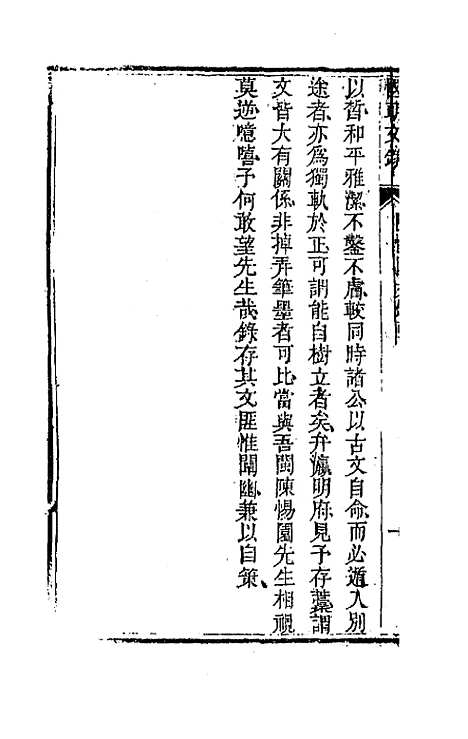 國朝文錄
以晳和平雅潔不鑿不膚較同時諸公以古文自命而必遁入別
途者亦爲獨軌於正可謂能自樹立者矣弁瀛明府見予存藁謂
文皆大有關係非掉弄筆墨者可比當與吾閩陳惕園先生相視
莫逆噫嘻予何敢望先生哉錄存其文匪惟闡幽兼以自策